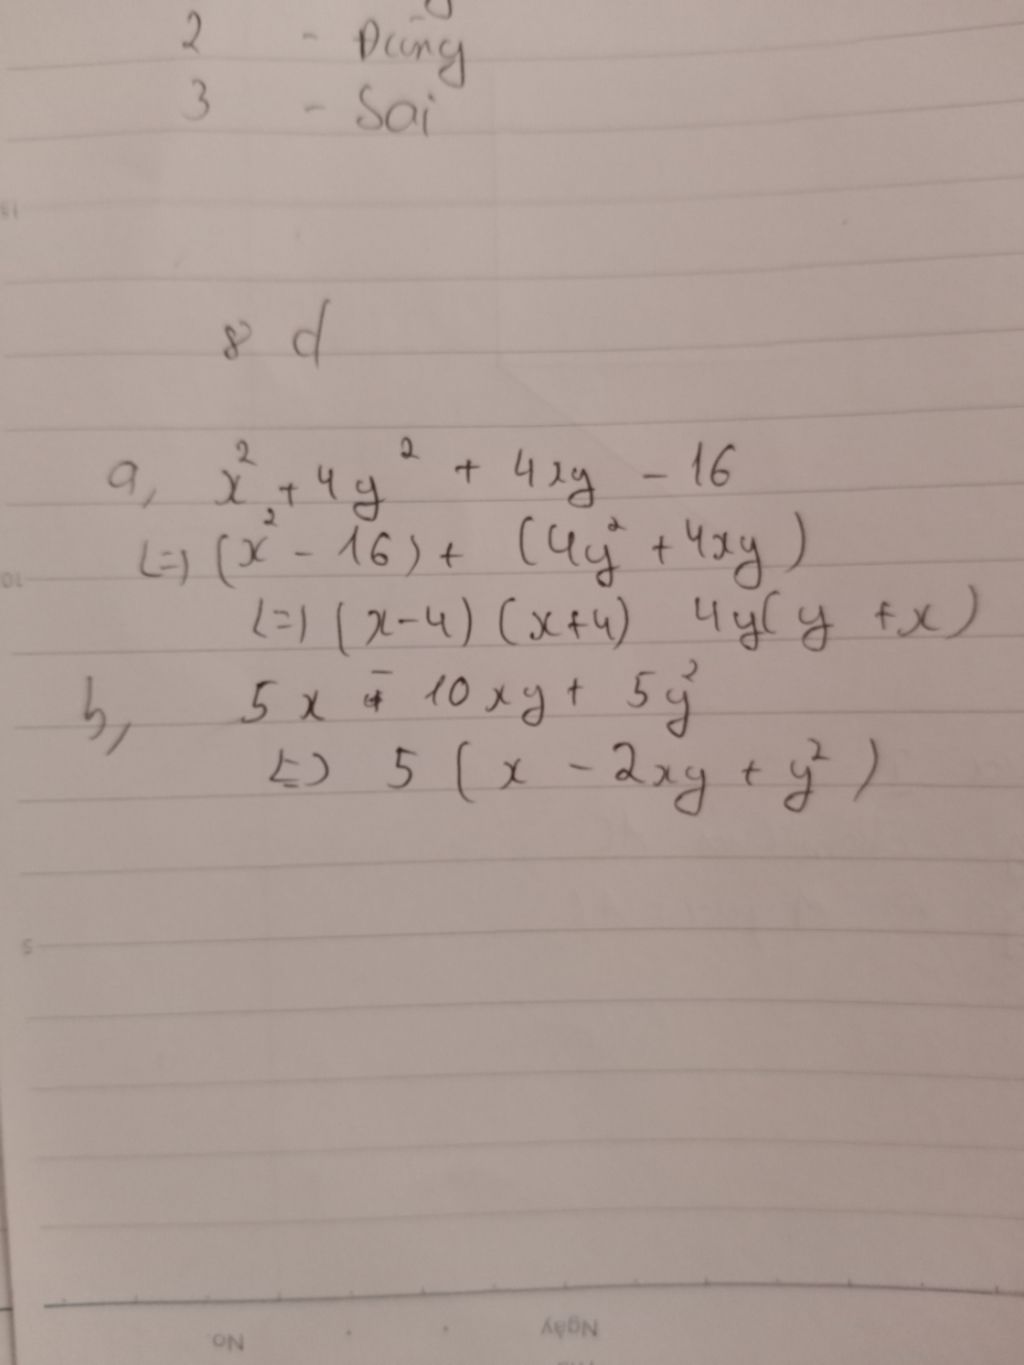 2 - Đúng
3 - Sai
8 d
a, x² + 4y² + 4xy - 16
<=> (x² - 16) + (4y² + 4xy)
<=> (x-4) (x+4) 4y(y +x)
b, 5x - 10xy + 5y²
<=> 5 (x - 2xy + y²)
10
5
Ngày
No.